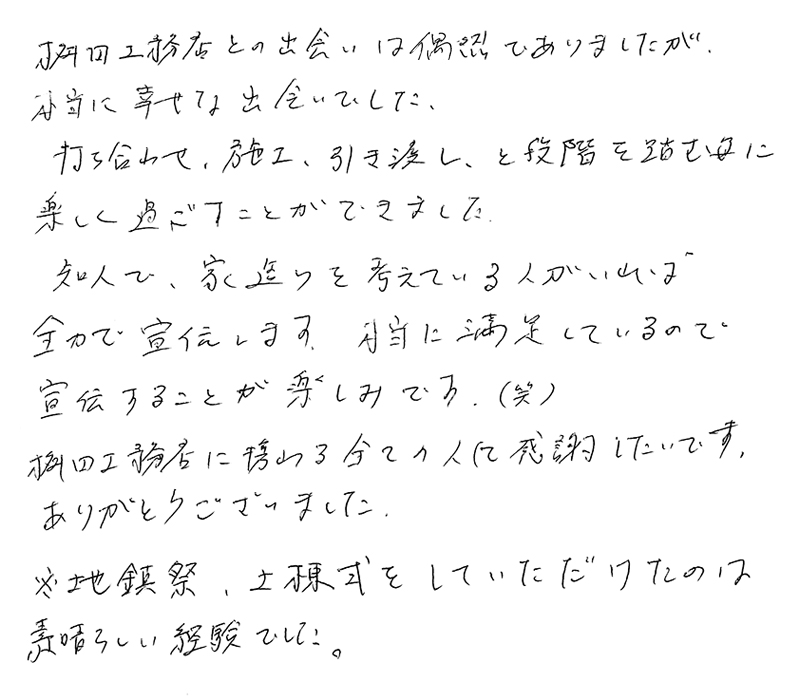 桝田工務店との出会いは偶然でありましたが、
本当に幸せな出会いでした、
打ち合わせ、施工、引き渡し、と段階を踏む毎に
楽しく過ごすことができました。
知人で、家造りを考えている人がいれば
全力で宣伝します。本当に満足しているので
宣伝することが楽しみです。(笑)
桝田工務店に携わる全ての人に感謝したいです。
ありがとうございました。
※地鎮祭、上棟式をしていただけたのは
素晴らしい経験でした。